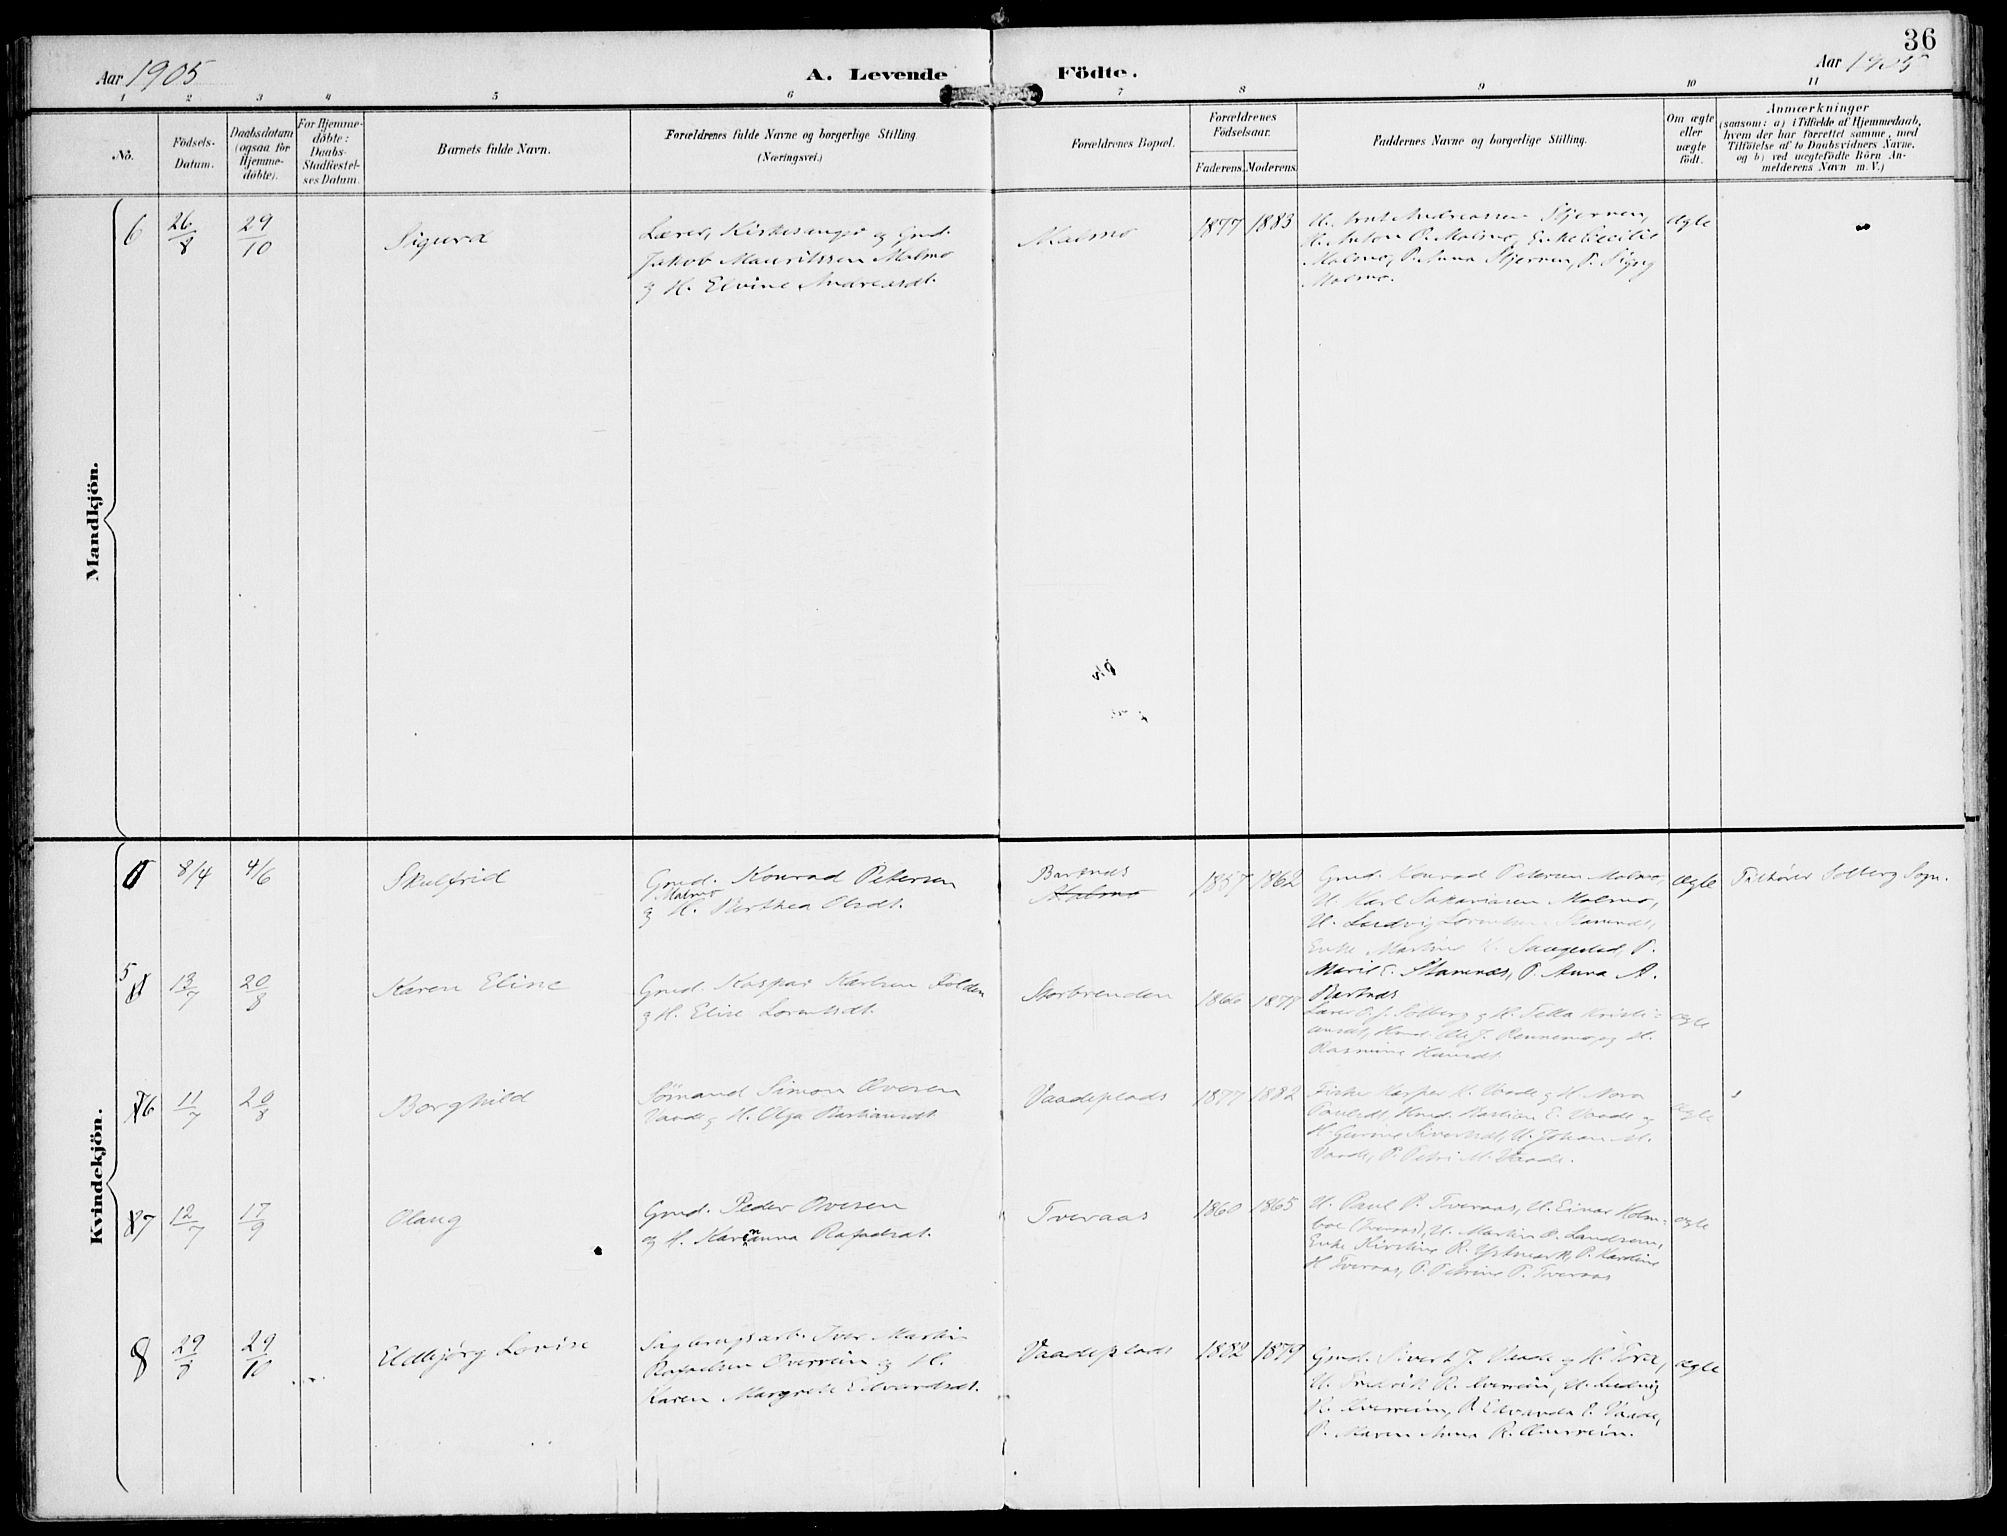 36
Aar 1905
A. Levende Födte.
Aar 1905
1 2 3 4 5 6 7 8 9 10 11
No.
Födsels-
Datum.
Daabsdatum
(ogsaa for
Hjemme-
döbte).
For Hjemme-
döbte:
Daabs-
Stadfæstel-
ses Datum.
Barnets fulde Navn.
Forældrenes fulde Navne og borgerlige Stilling.
(Næringsvei.)
Forældrenes Bopæl.
Forældrenes
Födselsaar.
Faderens. Moderens.
Faddernes Navne og borgerlige Stilling.
Om ægte
eller
uægte
födt.
Anmærkninger
(saasom: a) i Tilfælde af Hjemmedaab,
hvem der har forrettet samme, med
Tilföielse af to Daabsvidners Navne,
og b) ved uægtefödte Börn An-
melderens Navn m. V.)
Mandkjön.
6
26/8
29/10
Sigurd
Lærer, Kirkesanger og Gmd.
Jakob Mauritssen Malmo
og H. Elvine Andreasdt.
Malmo
1877 1883
U. Arnt Andreassen Stjernen,
U. Anton P. Malmo, Enke Cecilie
Malmo, P. Anna Stjernen, P. Signy
Malmo.
Ægte
Kvindekjön.
8/4
4/6
Skulfrid
Gmd. Konrad Petersen
Malmo
og H. Berthea Olsdt.
Bartnes
Malmo
1857 1862
Gmd. Konrad Petersen Malmo,
U. Karl Sakariasen Malmo,
U. Ludvig Lorentsen
Enke Martine
Marie E. Stamnes, P. Anna A.
Bartnes
Ægte
Tilhører Solberg Sogn.
5
13/7
20/8
Karen Eline
Gmd. Kaspar Karlsen Folden
og H. Elise Lorentsdt.
Storbrenden
1866 1877
Lærer O. J. Solberg og H. Kristi-
ansdt, Hmd. Ole J. Rennemo, og H.
Rasmine Hansdt.
ægte
6
11/7
20/8
Borghild
Sømand Simon Ovesen
Vaade og H. Olga Bastiansdt
Vaadeplads
1877 1882
Fisker Kasper K. Vaade og H. Nora
Paulsdt, Hmd. Bastian E. Vaade og
H. Gurine Sivertsdt, U. Johan M.
Vaade, P. Petra M. Vaade.
ægte
7
12/7
17/9
Olaug
Gmd. Peder Ovesen
og H. Karenanna Rafaelsdt.
Tveraas
1860 1865
U. Paul P. Tveraas, U. Einar Holm-
boe (Tveraas), U. Martin O. Landsem,
Enke Kirstine R. Ystmark, P. Karoline
H. Tveraas, P. Petrine P. Tveraas
ægte
8
29/8
29/10
Eldbjørg Lovise
Sagbrugsarb. Iver Martin
Rafaelsen Overrein og H.
Karen Margrete Edvardsdt.
Vaadeplads
1882 1879
Gmd. Sivert J. Vaade og H. Tora,
U. Fredrik R. Overrein, U. Ludvig
H. Overrein, P. Edvarda E. Vaade,
P. Karen Anna R. Overrein.
ægte